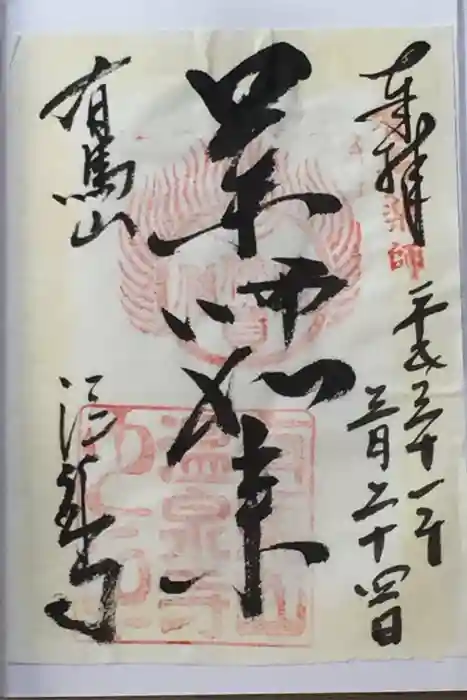 奉拝
平成三十一年
三月二十四日
薬師如来
有馬山
温泉寺
薬師
有馬山
温泉寺